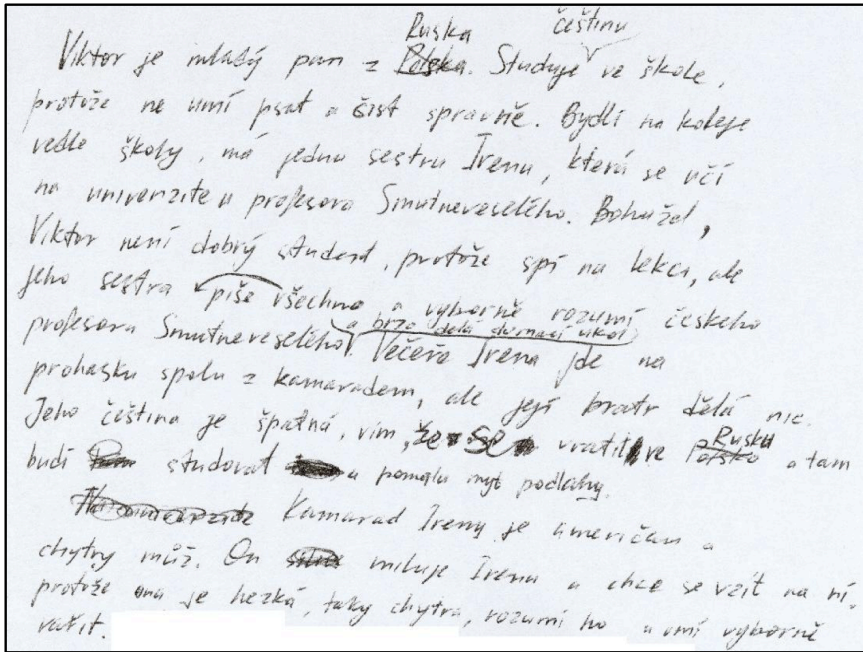 Ruska češtinu
Viktor je mladý pan z Polska. Studuje ve škole,
protože ne umí psat a čist spravně. Bydlí na koleje
vedle školy, má jednu sestru Irenu, která se učí
na univerzite u profesora Smutneveselého. Bohužel,
Viktor není dobrý student, protože spí na lekci, ale
jeho sestra piše všechno a vyborně rozumí českeho
a brzo dělá domací ukol
profesora Smutneveselého. Večeře Irena jde na
prohasku spolu z kamaradem, ale její bratr dělá nic.
Jeho čeština je špatná, vim, že se vratil ve Polsko Rusku a tam
budí studovat a pomalu myt podlahy.
Kamarad Ireny je američan a
chytry můž. On miluje Irenu a chce se vzít na ní,
protože ona je hezká, taky chytra, rozumí ho a umí vyborně
vařit.